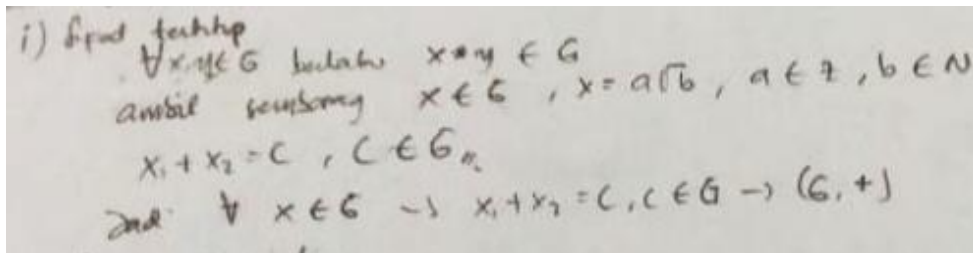 i) Sifat tertutup
∀x,y∈G berlaku x*y ∈ G
ambil sembarang x∈G , x=a√b , a∈Z , b∈N
x₁+x₂=c , c∈G
Jadi ∀ x∈G → x₁+x₂=c, c∈G → (G,+)